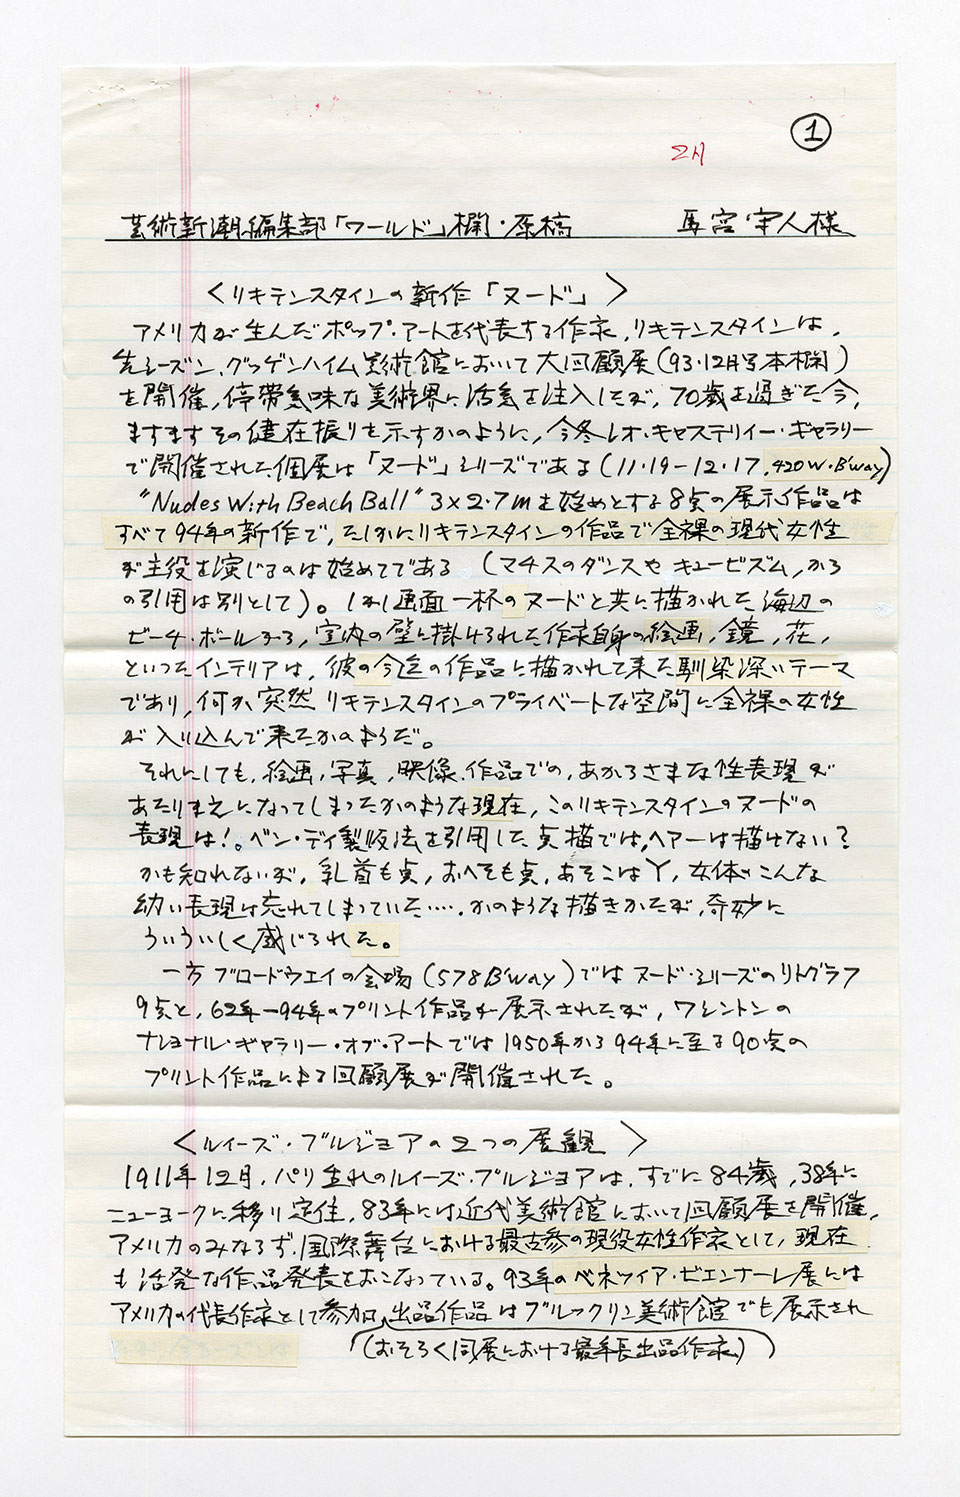 ①
2月
芸術新潮編集部「ワールド」欄・原稿 馬宮守人様
〈リキテンスタインの新作「ヌード」〉
アメリカが生んだポップ・アートを代表する作家、リキテンスタインは、
先シーズン、グッゲンハイム美術館において大回顧展(93・12月号本欄)
を開催、停滞気味な美術界に活気を注入したが、70歳を過ぎた今、
ますますその健在振りを示すかのように、今冬レオ・キャステリィー・ギャラリー
で開催された個展は「ヌード」シリーズである(11・19-12・17、420W・B'way)
"Nudes With Beach Ball" 3×2・7mを始めとする8点の展示作品は
すべて94年の新作で、たしかにリキテンスタインの作品で全裸の現代女性
が主役を演じるのは始めてである (マチスのダンスや キュービズム、から
の引用は別として)。しかし画面一杯のヌードと共に描かれた海辺の
ビーチ・ボールから、室内の壁に掛けられた作家自身の絵画、鏡、花、
といったインテリアは、彼の今迄の作品に描かれて来た馴染深いテーマ
であり、何か突然リキテンスタインのプライベートな空間に全裸の女性
が入り込んで来たかのようだ。
それにしても、絵画、写真、映像、作品での、あからさまな性表現が
あたりまえになってしまったかのような現在、このリキテンスタインのヌードの
表現は!。ベン・デイ製版法を引用した点描では、ヘアーは描けない?
かも知れないが、乳首も点、おへそも点、あそこはY、女体がこんな
幼い表現は忘れてしまっていた‥‥、かのような描きかたが、奇妙に
ういういしく感じられた。
一方ブロードウエイの会場(578B'way)ではヌード・シリーズのリトグラフ
9点と、62年-94年のプリント作品が展示されたが、ワシントンの
ナショナル・ギャラリー・オブ・アートでは1950年から94年に至る90点の
プリント作品による回顧展が開催された。
〈ルイーズ・ブルジョアの2つの展観〉
1911年12月、パリ生れのルイーズ・ブルジョアは、すでに84歳、38年に
ニューヨークに移り定住、83年には近代美術館において回顧展を開催、
アメリカのみならず、国際舞台における最古参の現役女性作家として、現在
も活発な作品発表をおこなっている。93年のベネツィア・ビエンナーレ展には
アメリカの代表作家として参加、出品作品はブルックリン美術館でも展示され
(おそらく同展における最年長出品作家)